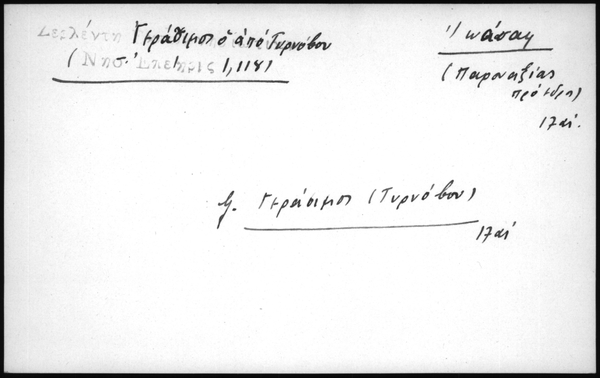 Δερλέντη Γεράσιμος ὁ ἀπό Τυρνόβου
(Νησ. Ἐπετηρίς 1,118)
Ἰωάσαφ
(Παροναξίας
πρόεδρος)
17 αἰ.
Γεράσιμος (Τυρνόβου)
17 αἰ